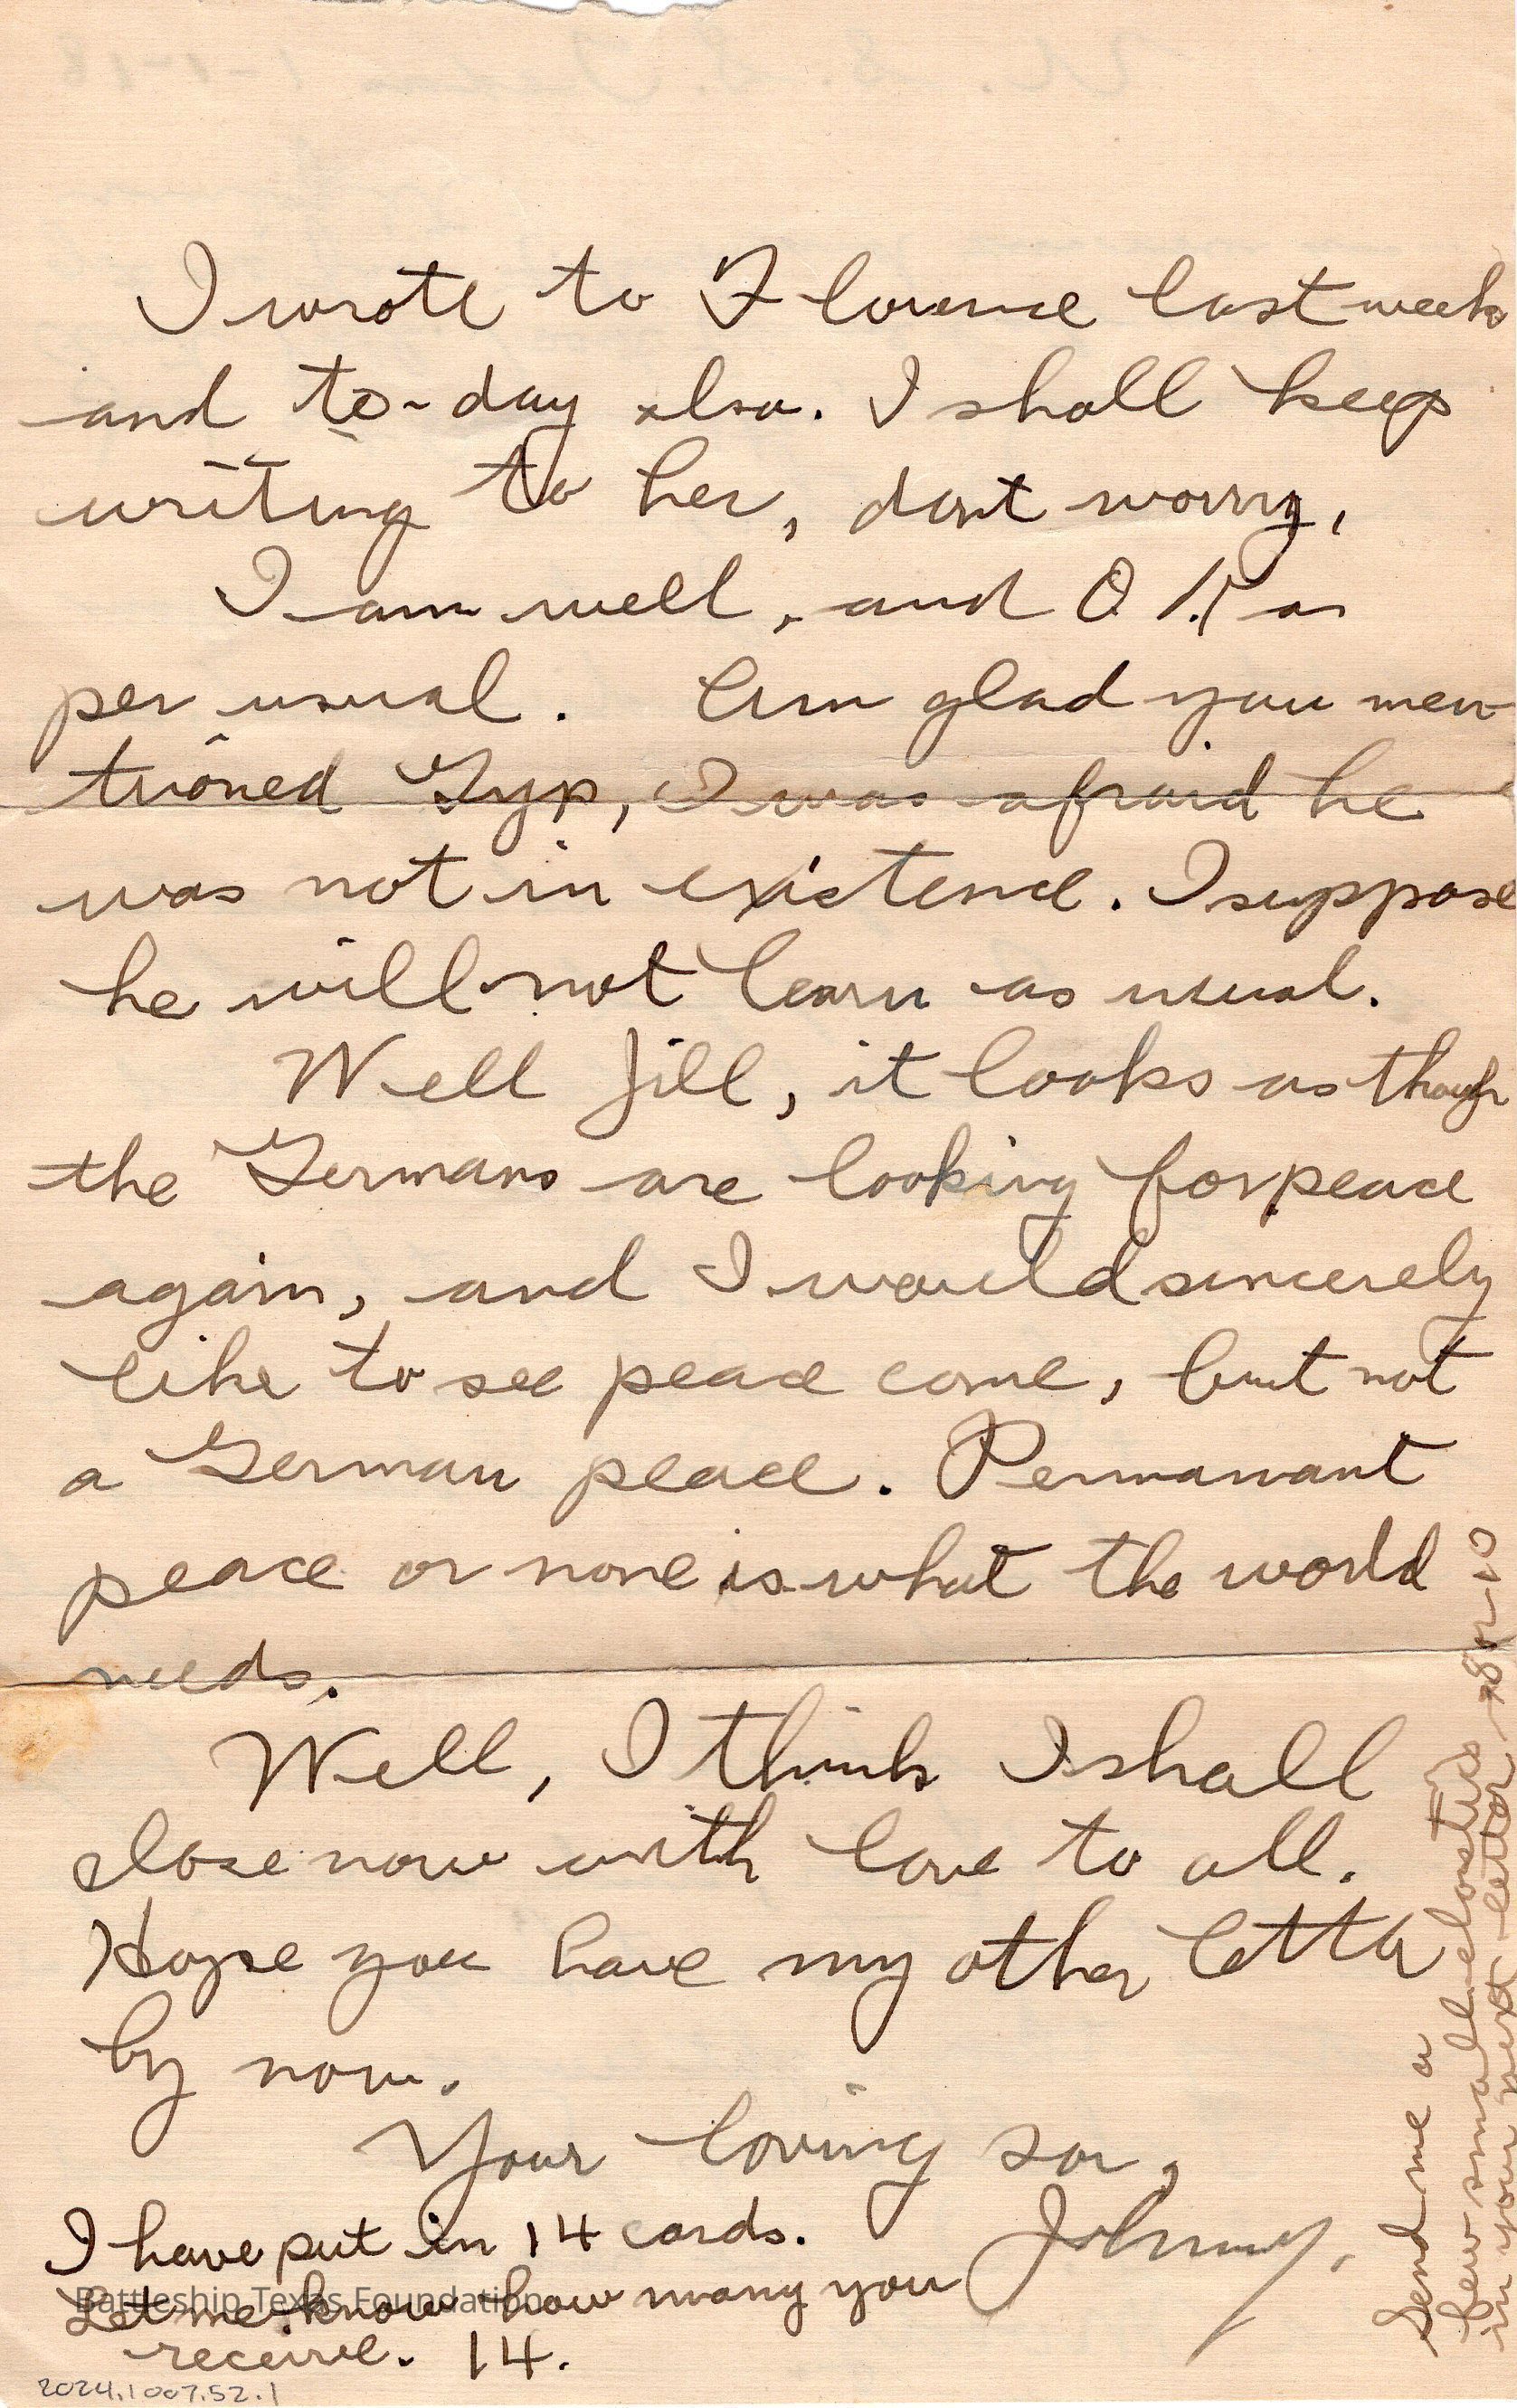 I wrote to Florence last week
and to-day also. I shall keep
writing to her, dont worry,
I am well, and O.K. as
per usual. Am glad you men-
tioned Gyp, I was afraid he
was not in existence. I suppose
he will not learn as usual.
Well Jill, it looks as though
the Germans are looking for peace
again, and I would sincerely
like to see peace come, but not
a German peace. Permanant
peace or none is what the world
needs.
Well, I think I shall
close now with love to all.
Hope you have my other letter
by now.
Your loving son,
Johnny.
I have put in 14 cards.
Let me know how many you
receive. 14.
Send me a
few small elastics
in your next letter
Battleship Texas Foundation
2024.1007.52.1